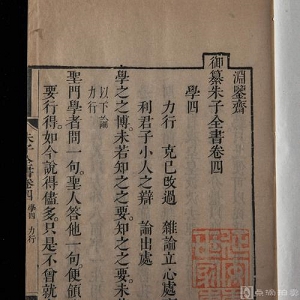 淵鑒齋
御纂朱子全書卷四
學四
力行　克己改過　雜論立心處
利君子小人之辯　論出處
學之之博未若知之之要知之之要未
以下論力行
聖門學者問一句聖人答他一句便領
要行得如今說得儘多只是不曾就
朱子全書卷四　學四　力行